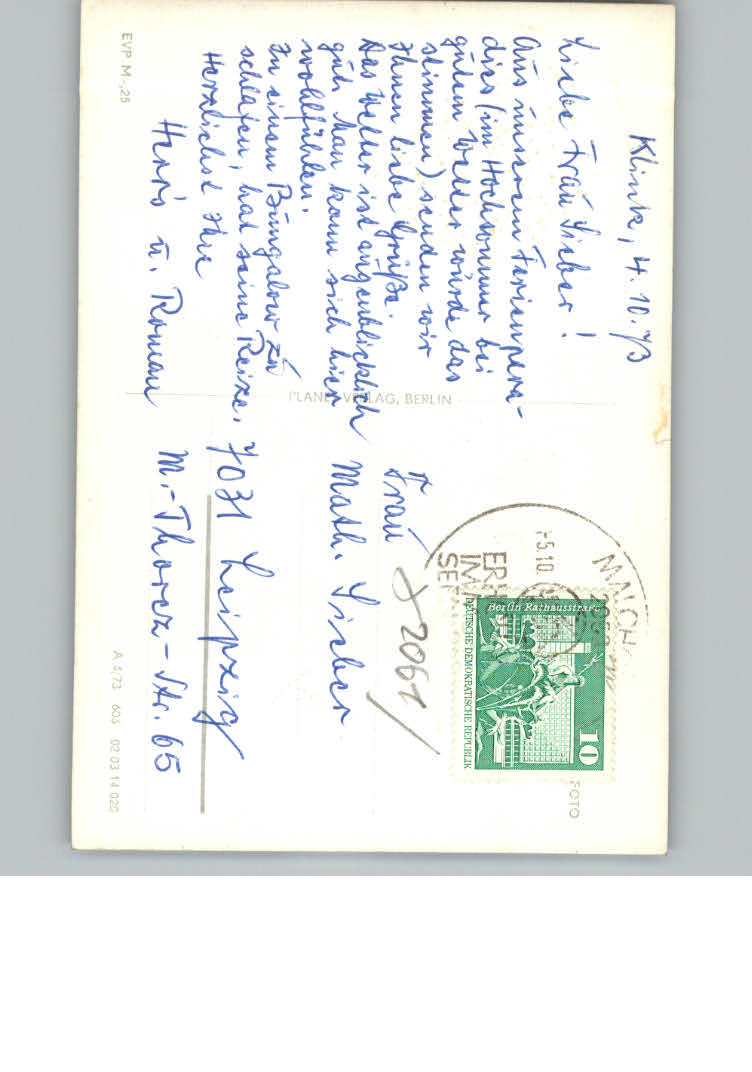 Klink, 4.10.73
Liebe Frau Sieber!
Aus unserem Ferienpara-
dies (im Hochsommer bei
gutem Wetter würde das
stimmen) senden wir
Ihnen liebe Grüße.
Das Wetter ist augenblicklich
gut. Man kann sich hier
wohlfühlen.
In einem Bungalow zu
schlafen, hat seine Reize.
Herzlichst Ihre
u. Roman
Frau
Math. Sieber
7031 Leipzig
M.-Thorez-Str. 65
2061
EVP M -,25
PLANET-VERLAG, BERLIN
A 4/73 603 02 03 14 020
FOTO
MALCH
-5.10
Berlin Rathausstraße
DEUTSCHE DEMOKRATISCHE REPUBLIK
10